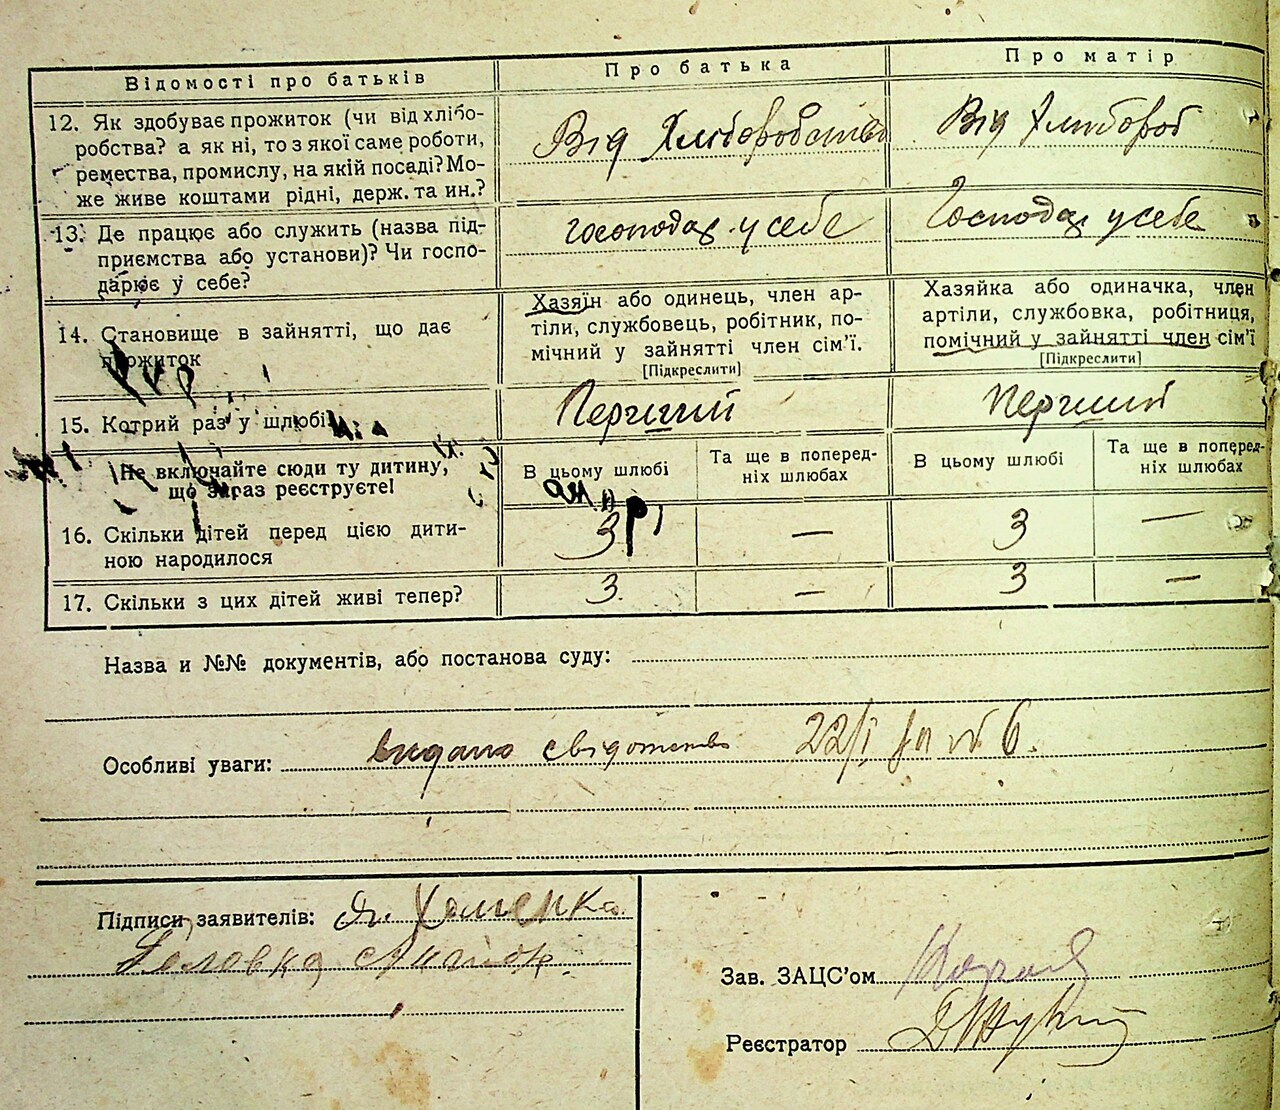 Відомості про батьків
Про батька
Про матір
12. Як здобуває прожиток (чи від хлібо-
робства? а як ні, то з якої саме роботи,
ремества, промислу, на якій посаді? Мо-
же живе коштами рідні, держ. та ин.?
Від Хліборобства
Від Хлібороб
13. Де працює або служить (назва під-
приємства або установи)? Чи госпо-
дарює у себе?
господар у себе
Господар у себе
14. Становище в зайнятті, що дає
прожиток
Хазяїн або одинець, член ар-
тіли, службовець, робітник, по-
мічний у зайнятті член сім'ї.
[Підкреслити]
Хазяйка або одиначка, член
артіли, службовка, робітниця,
помічний у зайнятті член сім'ї
[Підкреслити]
15. Котрий раз у шлюбі
Перший
Перший
Не включайте сюди ту дитину,
що зараз реєструєте!
В цьому шлюбі
Та ще в поперед-
ніх шлюбах
В цьому шлюбі
Та ще в поперед-
ніх шлюбах
16. Скільки дітей перед цією дити-
ною народилося
3 — 3 —
17. Скільки з цих дітей живі тепер?
3. — 3 —
Назва и №№ документів, або постанова суду:
Особливі уваги: видано свідотство 22/I № 6.
Підписи заявителів: Хоменко
Зав. ЗАЦС'ом
Реєстратор